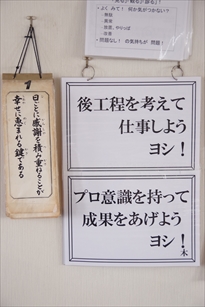 よく みて! 何か気がつかない?
問題なし! 自覚持ちが 問題!
後工程を考えて
仕事しよう
ヨシ!
プロ意識を持って
成果をあげよう
ヨシ!
木
日ごとに感謝を積み重ねることが
幸せに恵まれる鍵である